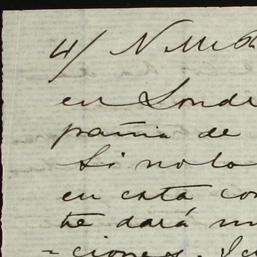 4/ N
en Londr
pañia de
Si no lo
en esta con
te dará un
=ciones.